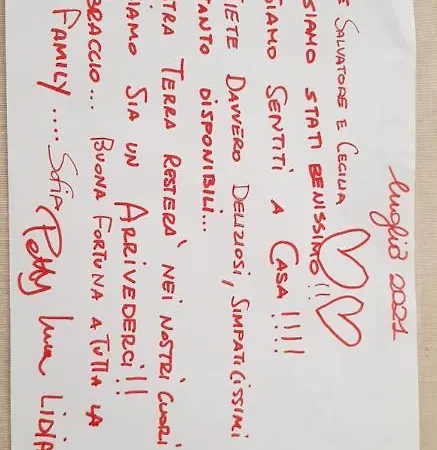 luglio 2021
E SALVATORE E CECILIA
SIAMO STATI BENISSIMO!!
SIAMO SENTITI A CASA !!!!
SIETE DAVVERO DELIZIOSI, SIMPATICISSIMI
TANTO DISPONIBILI...
STRA TERRA RESTERÀ NEI NOSTRI CUORI
RIAMO SIA UN ARRIVEDERCI!!!
BRACCIO... BUONA FORTUNA A TUTTA LA
FAMILY .... Sofia Petty Luca LIDIA